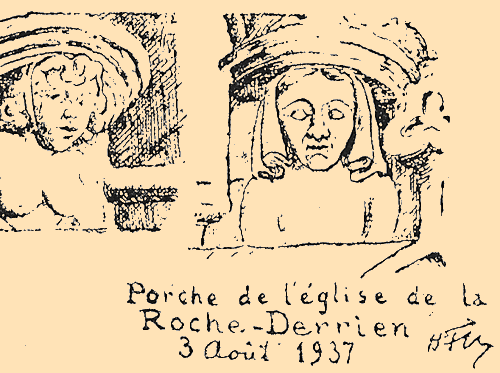 Porche de l'église de la
Roche-Derrien
3 Août 1937